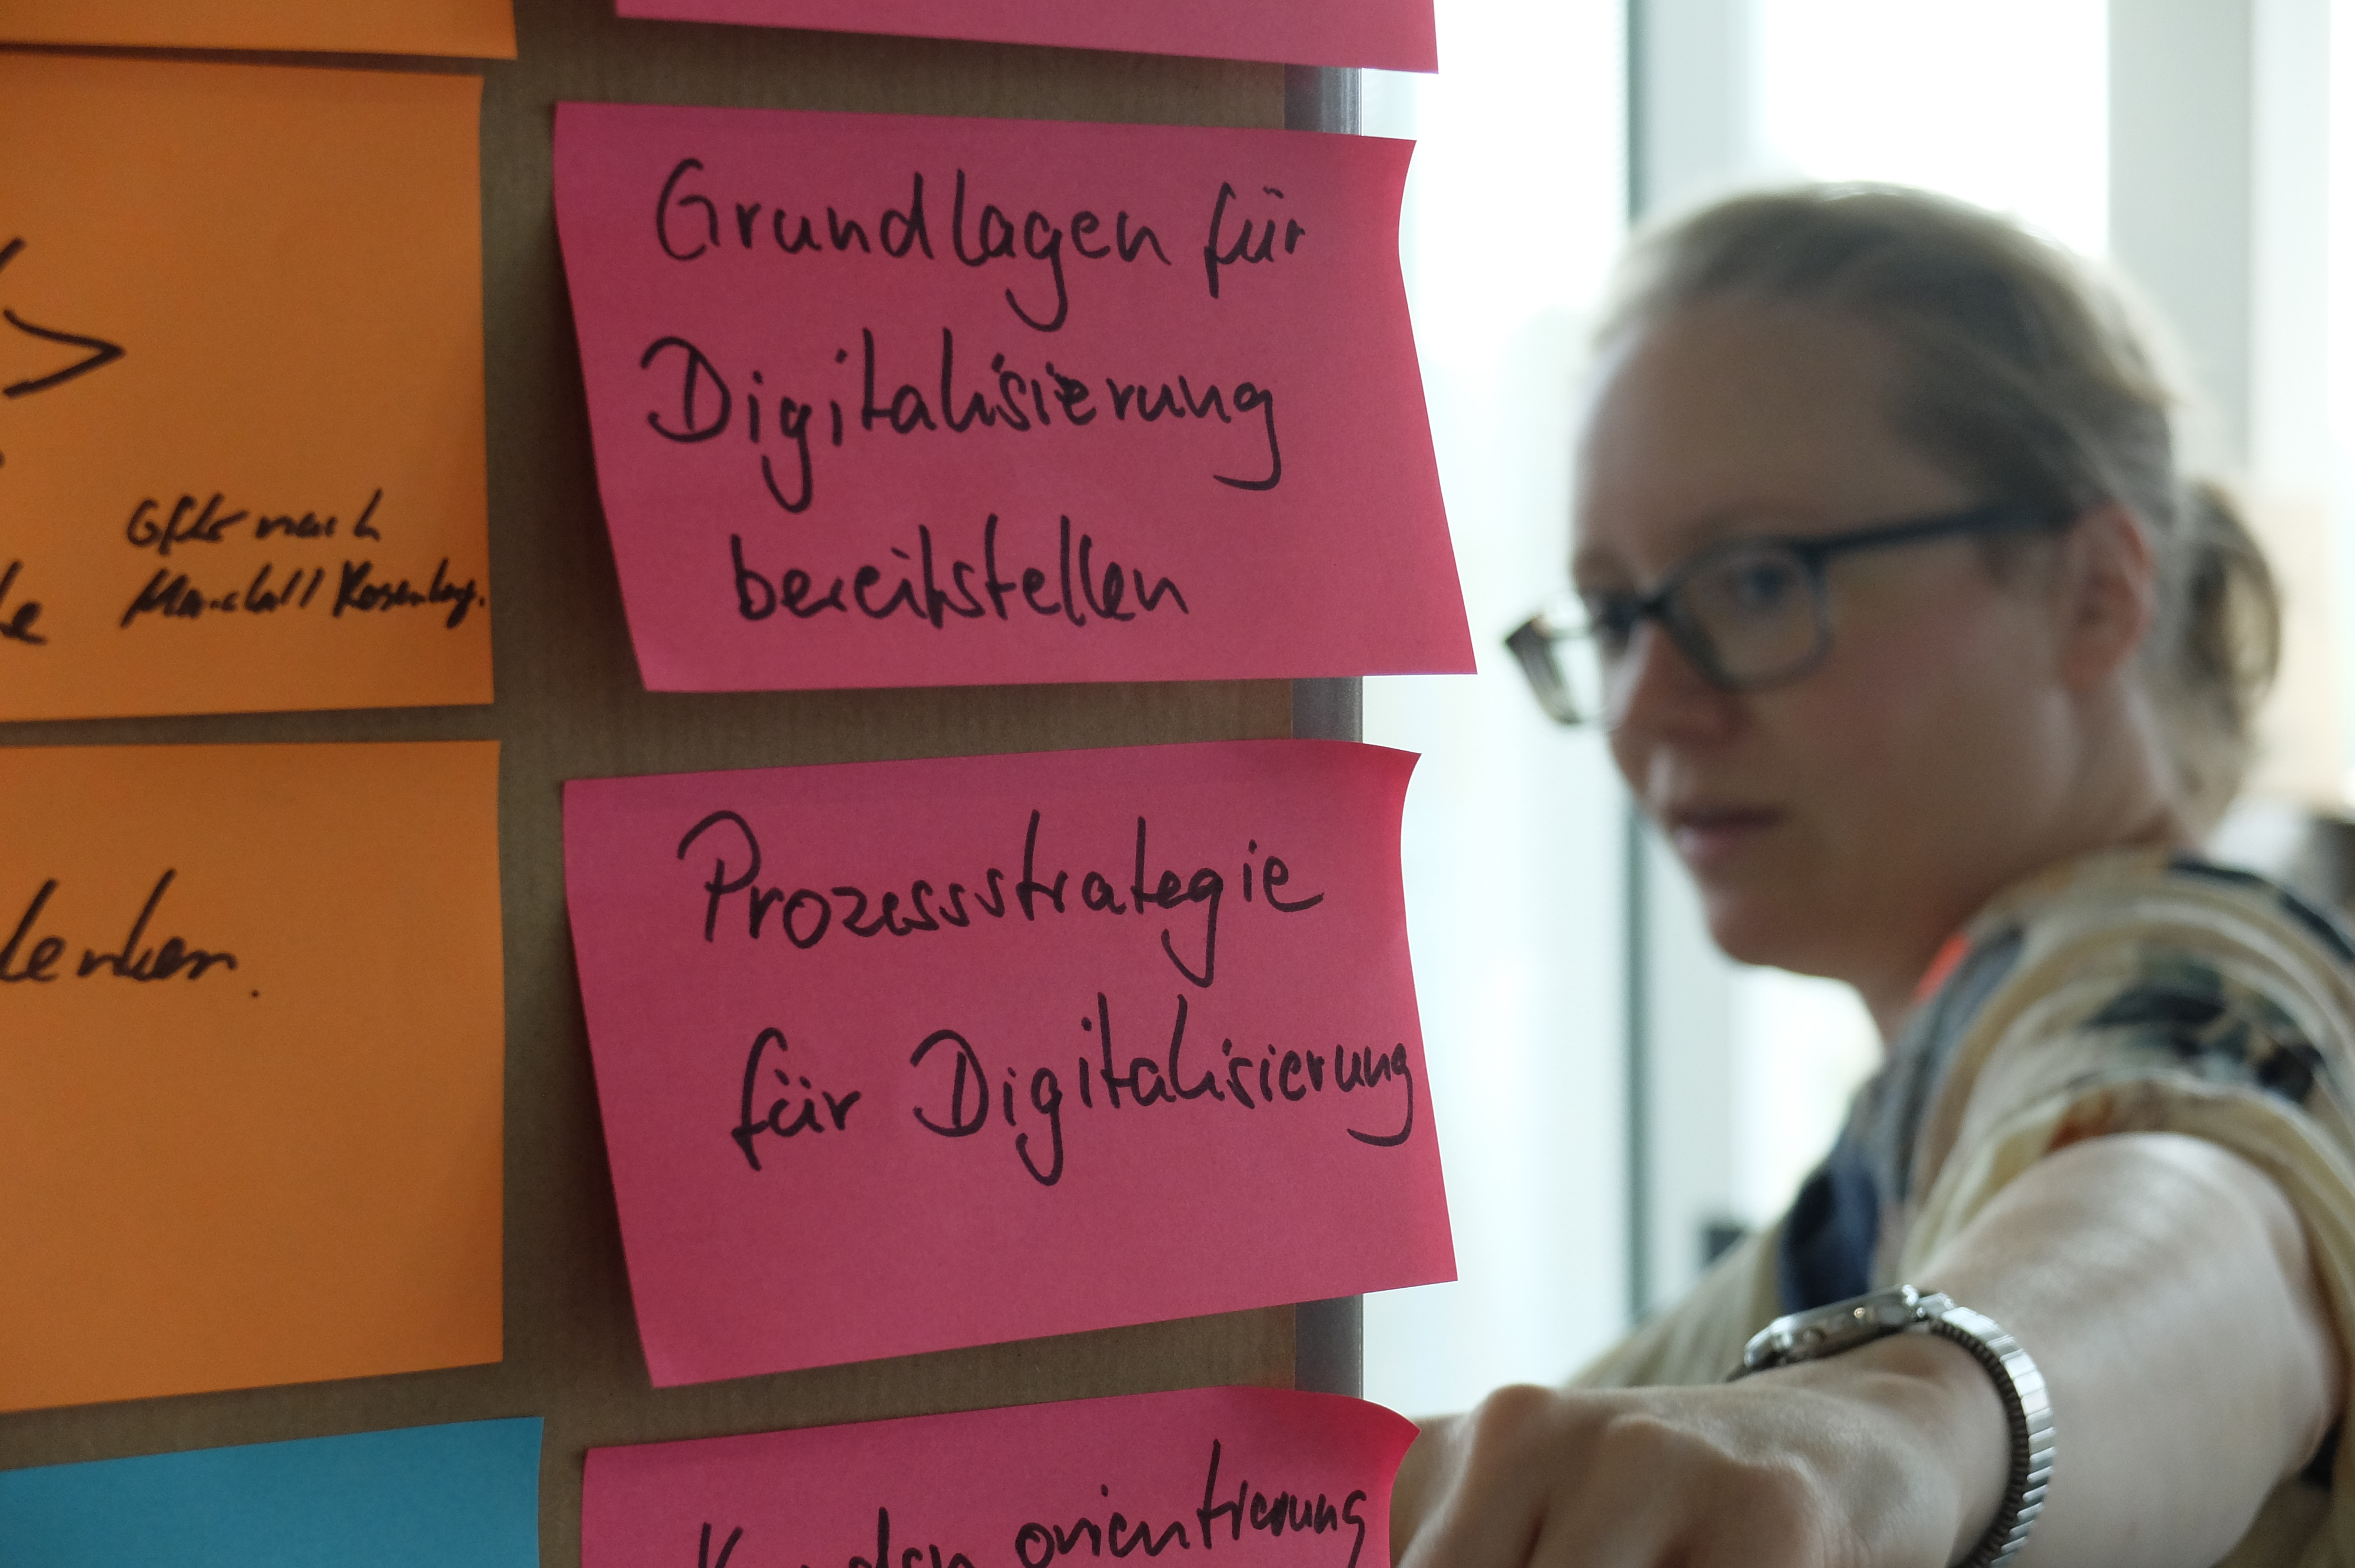 nach
Marshall Rosenberg.
denken.
Grundlagen für
Digitalisierung
bereitstellen
Prozessstrategie
für Digitalisierung
Kunden orientierung